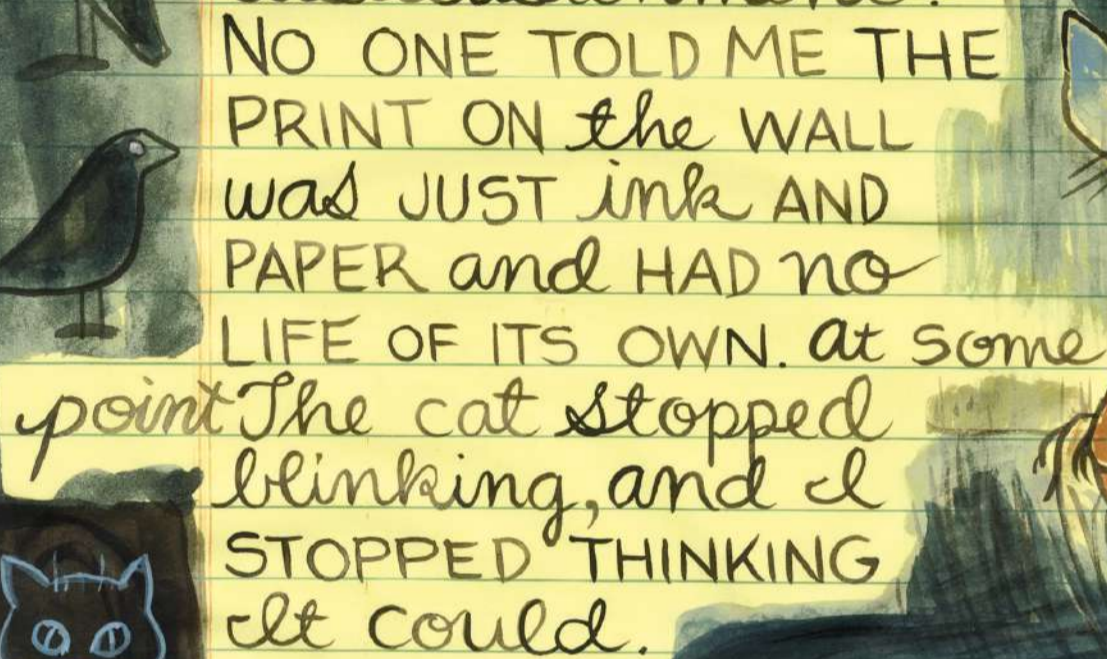 NO ONE TOLD ME THE
PRINT ON the WALL
was JUST ink AND
PAPER and HAD no
LIFE OF ITS OWN. at some
point The cat stopped
blinking, and I
STOPPED THINKING
It could.